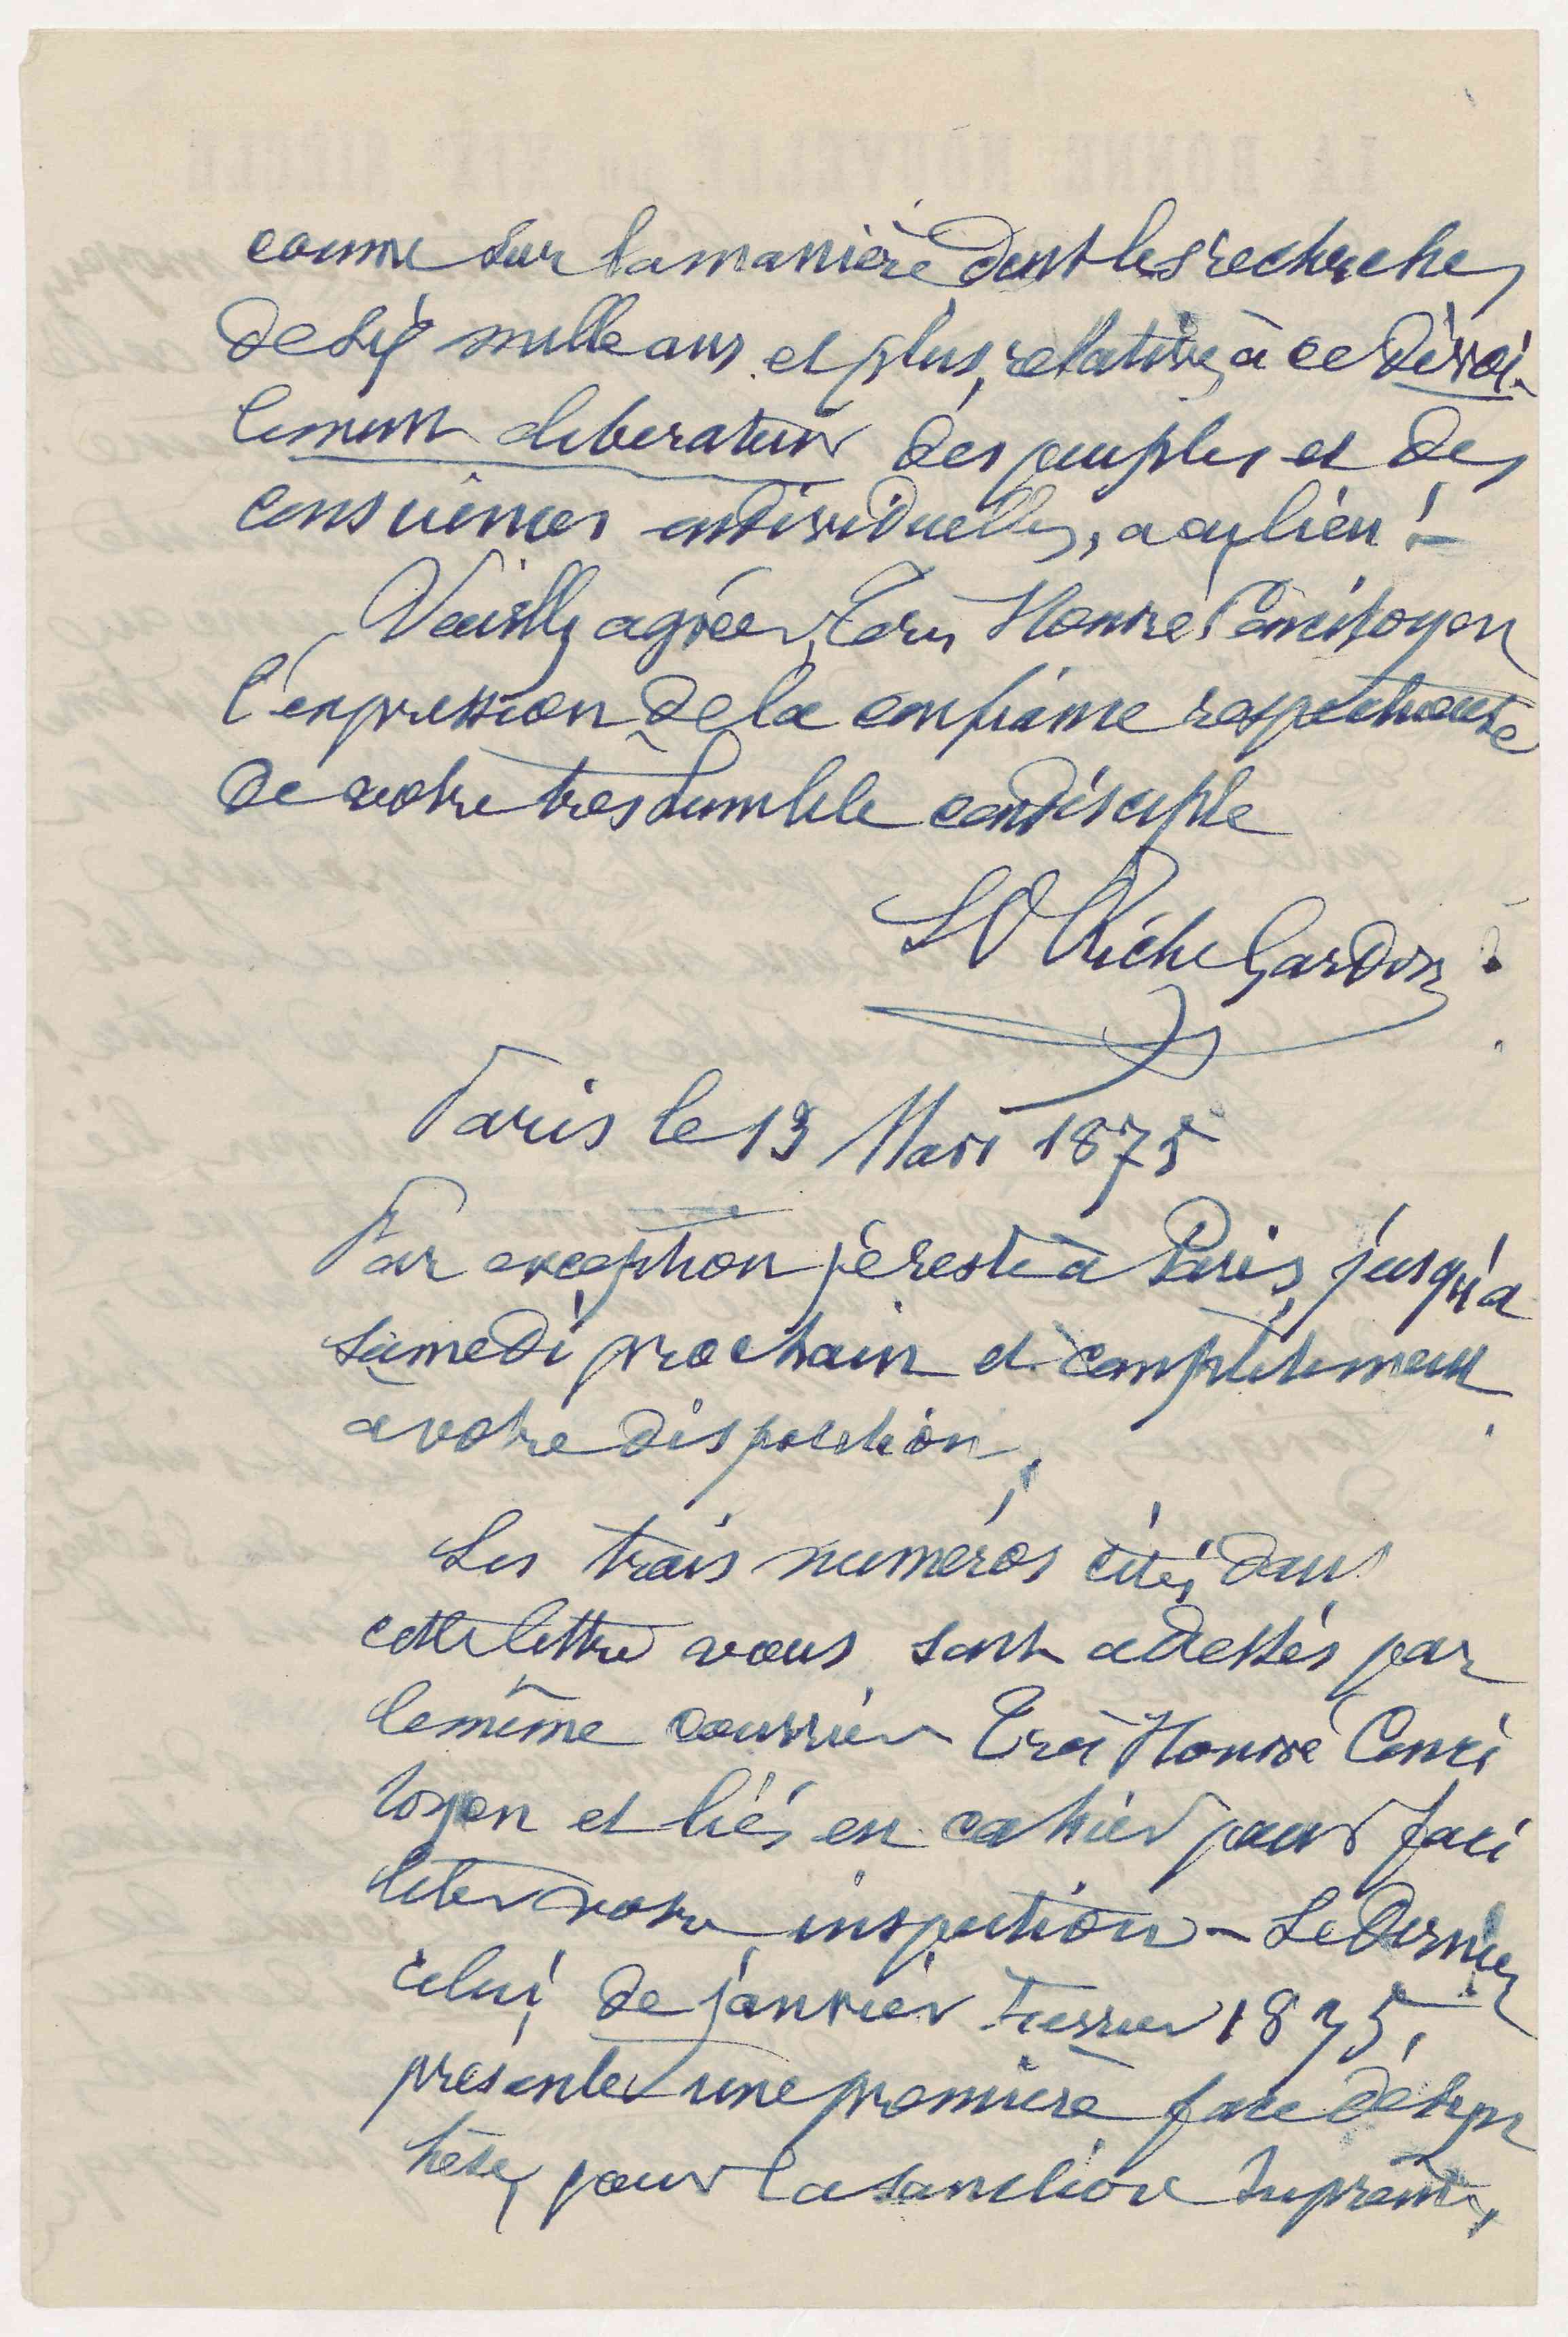 comme sur la manière dont les recherches
de six mille ans et plus, relatives à ce dévoi-
lement libérateur des peuples et des
consciences individuelles, a eu lieu! -
Veuillez agréer, Très Honoré Concitoyen
l'expression de la confiance respectueuse
de votre très humble condisciple
LP Riche Gardon
Paris le 13 Mars 1875
Par exception je reste à Paris, jusqu'à
samedi prochain et complètement
à votre disposition,
Les trois numéros cités dans
cette lettre vous sont adressés par
le même courrier Très Honoré Conci
toyen et liés en cahier pour faci
liter votre inspection - Le dernier
celui, de janvier Fevrier 1875,
présente une première face de syn
thèse, pour la sanction suprême,